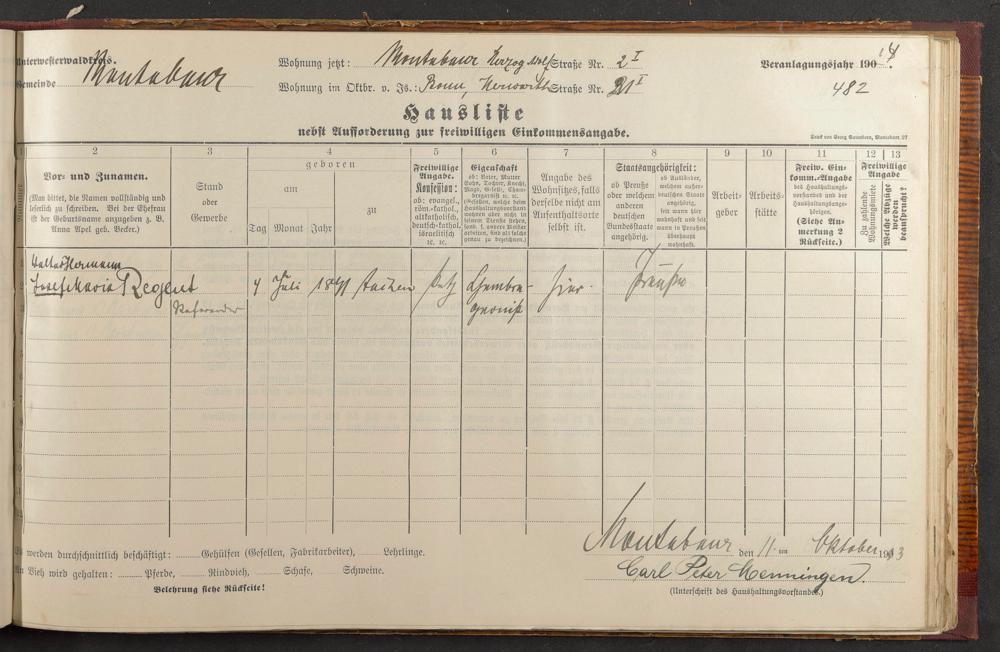 Unterwesterwaldkreis.
Gemeinde Montabaur
Wohnung jetzt: Montabaur Herzog Straße Nr. 2 I
Wohnung im Oktbr. v. Js.: Straße Nr. 21 I
Veranlagungsjahr 1904.
482
Hausliste
nebst Aufforderung zur freiwilligen Einkommensangabe.
Druck von Georg Sauerborn, Montabaur
1 2 3 4 5 6 7 8 9 10 11 12 13
Vor- und Zunamen.
(Man bittet, die Namen vollständig und
leserlich zu schreiben. Bei der Ehefrau
ist der Geburtsname anzugeben z. B.
Anna Apel geb. Becker.)
Stand
oder
Gewerbe
geboren
am
zu
Tag Monat Jahr
Freiwillige
Angabe.
Konfession:
ob: evangel.,
röm.-kathol.,
altkatholisch,
deutsch-kathol.
israelitisch
ec. ec.
Eigenschaft
ob: Vater, Mutter
Sohn, Tochter, Knecht,
Magd, Geselle, Cham-
bregarnist u. ec.
(Gesellen, welche beim
Haushaltungsvorstand
wohnen aber nicht in
seinem Dienste stehen,
sond. f. andere Meister
arbeiten, sind als solche
genau zu bezeichnen).
Angabe des
Wohnsitzes, falls
derselbe nicht am
Aufenthaltsorte
selbst ist.
Staatsangehörigkeit:
ob Preuße
oder welchem
anderen
deutschen
Bundesstaate
angehörig.
ob Ausländer,
welchem außer-
deutschen Staate
angehörig,
seit wann hier
wohnhaft und seit
wann in Preußen
überhaupt
wohnhaft.
Arbeit-
geber
Arbeits-
stätte
Freiw. Ein-
komm.-Angabe
des Haushaltungs-
vorstandes und der
Haushaltungsange-
hörigen.
(Siehe An-
merkung 2
Rückseite.)
Freiwillige
Angabe
Zu zahlende
Wohnungsmiete
Welche Abzüge
werden
beansprucht?
Walter Hermann
Josef Maria Regent
Referendar
4 Juli Aachen kath Chambre-
garnist
hier Preuße
Es werden durchschnittlich beschäftigt: Gehülfen (Gesellen, Fabrikarbeiter), Lehrlinge.
An Vieh wird gehalten: Pferde, Rindvieh, Schafe, Schweine.
Belehrung siehe Rückseite!
Montabaur den 11. ten Oktober 1903
Carl Peter Menningen.
(Unterschrift des Haushaltungsvorstandes.)